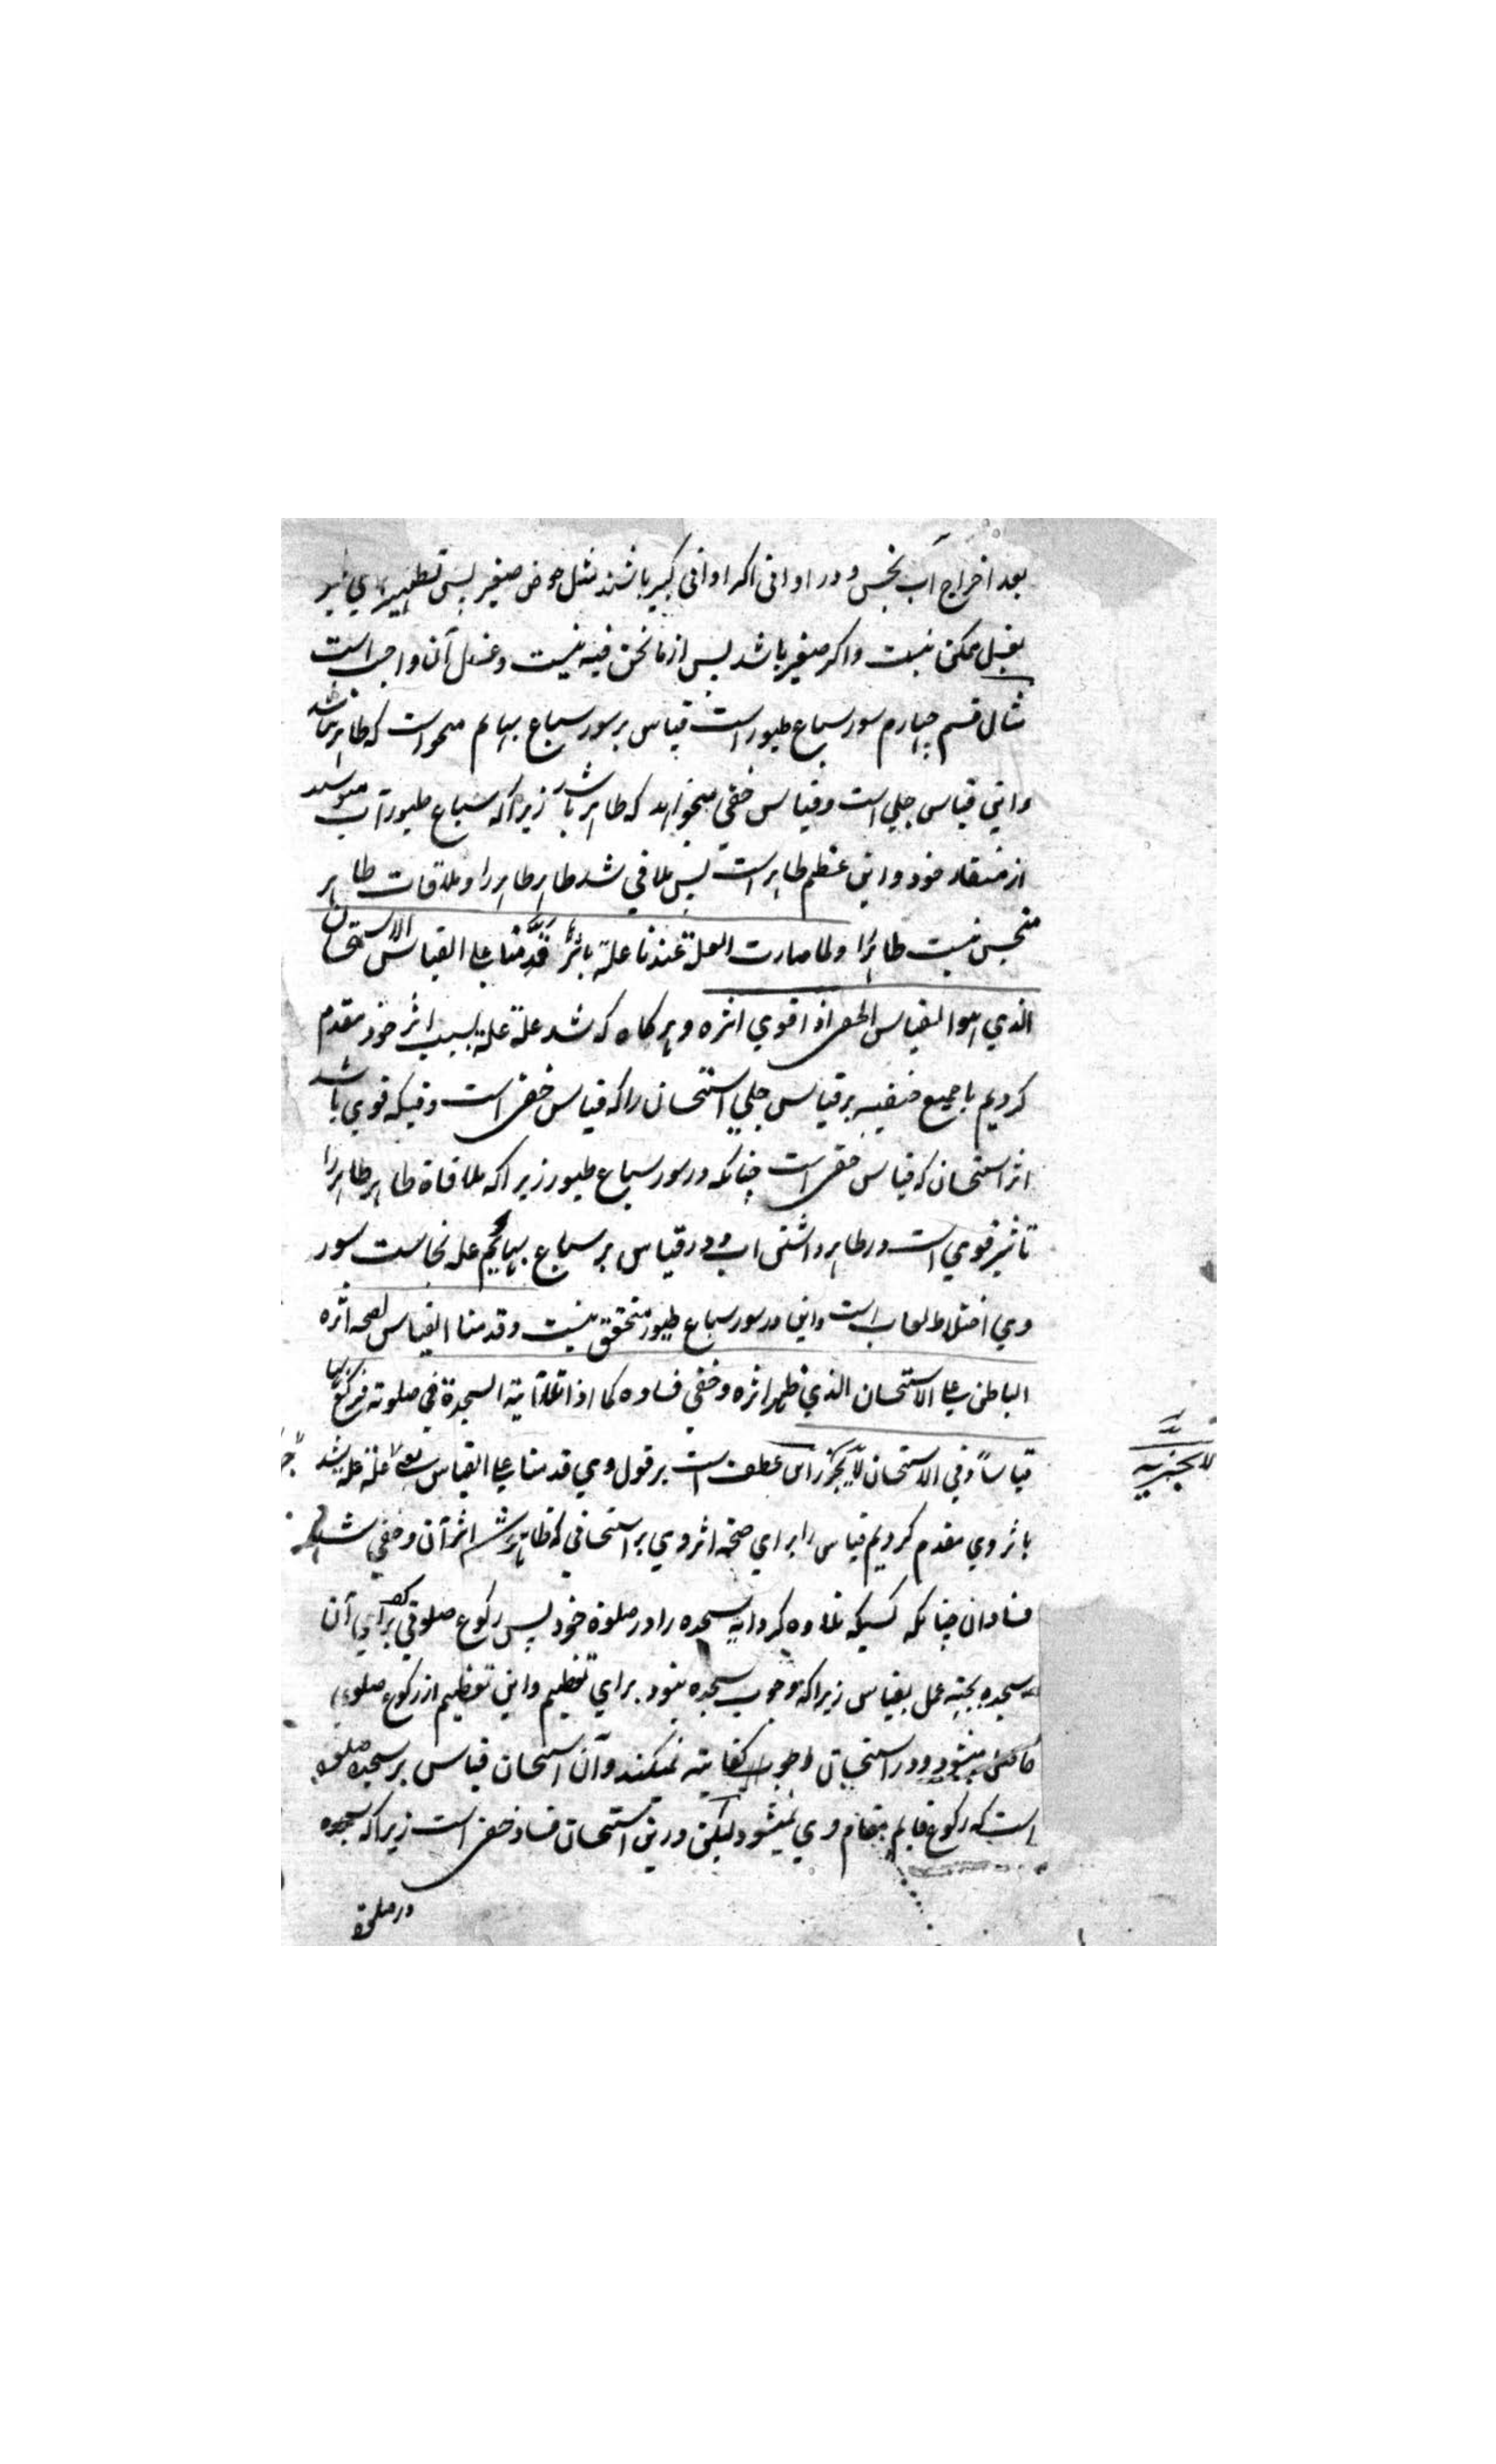 بعد اخراج آب نجس و در اوانی اکر اوانی کبیر باشند مثل حوض صغیر پس تطهیر وی نیز
بغسل ممکن نیست واکر صغیر باشد پس از ما نحن فیه نیست وغسل آن واجب است
مثال قسم چهارم سور سباع طیور است قیاس بر سور سباع بهایم میخواست که طاهر نباشد
واین قیاس جلی است وقیاس خفی میخواهد که طاهر باشد زیرا که سباع طیور آب مینوشند
از منقار خود واین عظم طاهر است پس ملاقی شد طاهر طاهر را وملاقات طاهر
منجس نیست طاهر را ولما صارت العلة عندنا علة باثرها قدمنا علی القیاس الاستحسان
الذی هو القیاس الخفی اذا قوی اثره وهرکاه که شد علة علة بسبب اثر خود مقدم
کردیم با جمیع حنفیه بر قیاس جلی استحسان را که قیاس خفی است وقتیکه قوی باشد
اثر استحسان که قیاس خفی است چنانکه در سور سباع طیور زیرا که ملاقاة طاهر طاهر را
تاثیر قوی است در طاهر داشتن اب ودر قیاس بر سباع بهایم عله نجاست سور
وی اختلاط لعاب است واین در سور سباع طیور متحقق نیست وقدمنا القیاس لصحه اثره
الباطن علی الاستحسان الذی ظهر اثره وخفی فساده کما اذا تلا آیة السجدة فی صلوته فیرکع بها
قیاسا وفی الاستحسان لا یجزیه این عطف است بر قول وی قدمنا علی القیاس یعنی علة عله شد
باثر وی مقدم کردیم قیاس را برای صحة اثر وی بر استحسانی که ظاهر شد اثر آن وخفی شد
فساد ان چنانکه کسیکه تلاوه کرد ایه سجده را در صلوة خود پس رکوع صلوتی کند برای آن
سجده بجهة عمل بقیاس زیرا که وجوب سجده نبود برای تعظیم واین تعظیم از رکوع صلوتی
حاصل میشود ودر استحسان رکوع کفایة نمیکند وآن استحسان قیاس بر سجده صلوة
است که رکوع قایم بمقام وی نمیشود لیکن درین استحسان فساد خفی است زیرا که سجده
در صلوة
لا یجزیه